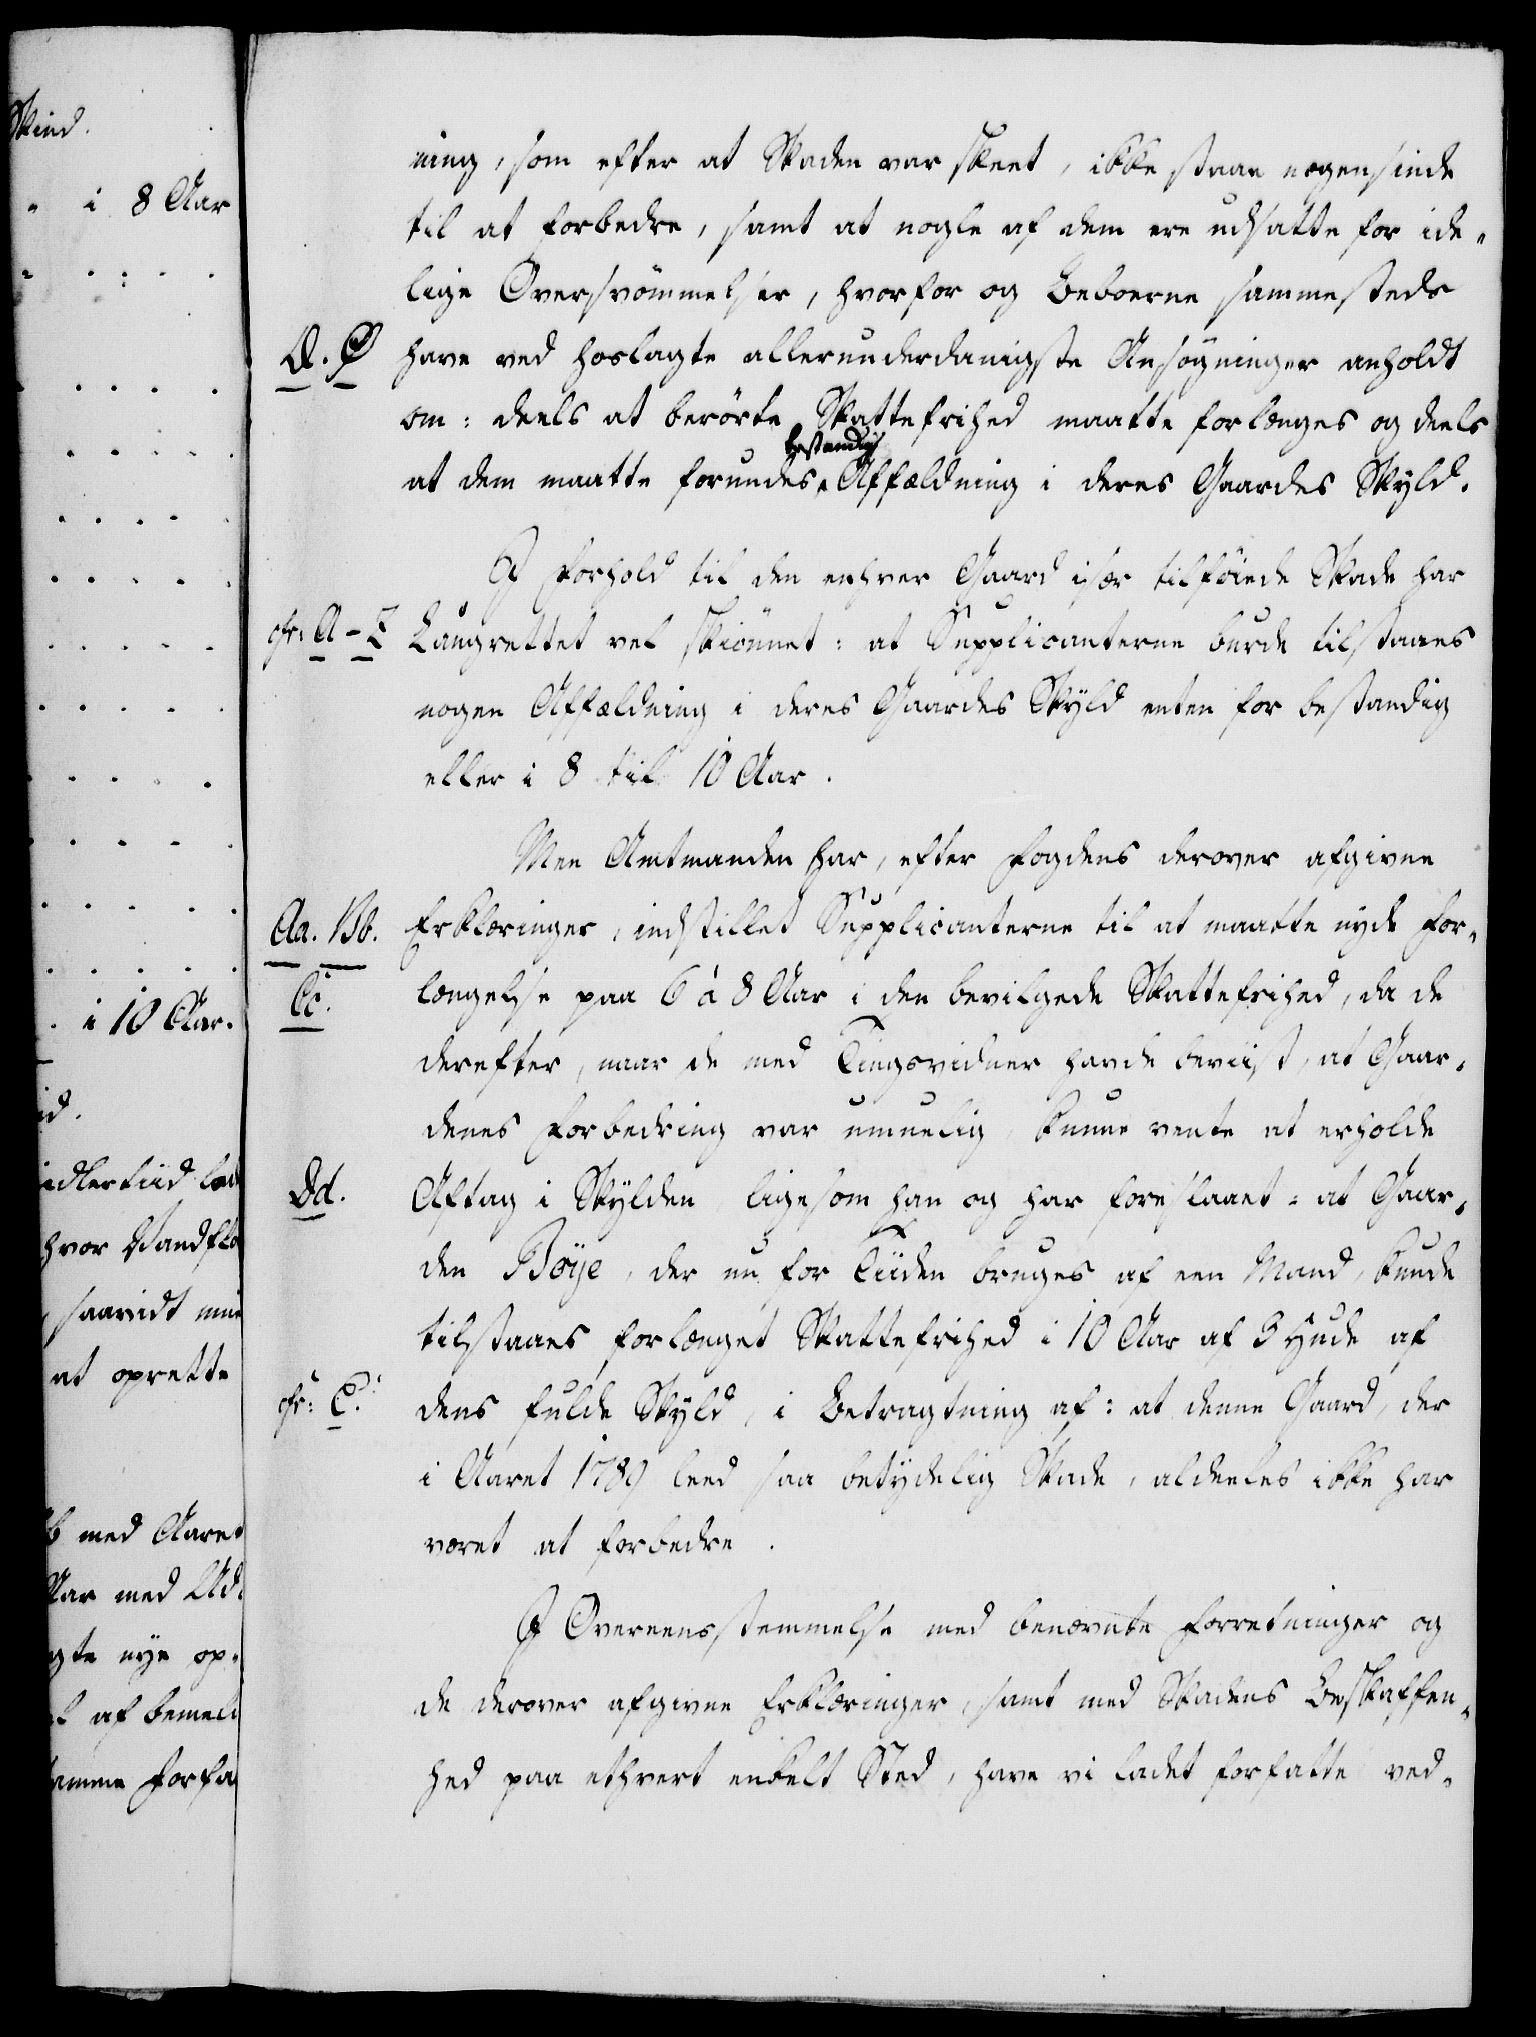 Skind.
i 8 Aar
i 10 Aar.
id.
idlertiid lad
hvor Vandflo
saavidt mue
at oprette
b med Aaret
Aar med Ud
gte nye op-
l af bemel
amme Forfa
ning, som efter at Skaden var skeet, ikke staae nogensinde
til at forbedre, samt at nogle af dem ere udsatte for ide-
lige Oversvömmelser, hvorfor og Beboerne sammesteds
Q. Ø have ved hoslagte allerunderdanigste Ansøgninger anholdt
om: deels at berörte Skattefrihed maatte forlænges og deels
bestandig
at dem maatte forundes Affældning i deres Gaardes Skyld.
I Forhold til den enhver Gaard især tilföiede Skade har
cfr: A - E Laugrettet vel skiönnet: at Supplicanterne burde tilstaaes
nogen Affældning i deres Gaardes Skyld enten for bestandig
eller i 8 til 10 Aar.
Men Amtmanden har, efter Fogdens derover afgivne
Aa. Bb. Erklæringer, indstillet Supplicanterne til at maatte nyde For-
Cc. længelse paa 6 à 8 Aar i den bevilgede Skattefrihed, da de
derefter, naar de med Tingsvidner havde beviist, at Gaar-
denes Forbedring var umuelig, kunne vente at erholde
Dd. Aftag i Skylden ligesom han og har foreslaaet: at Gaar-
den Böye, der nu for Tiiden bruges af een Mand, kunde
tilstaaes forlænget Skattefrihed i 10 Aar af 3 Hude af
cfr: C. dens fulde Skyld, i Betragtning af: at denne Gaard, der
i Aaret 1789 leed saa betydelig Skade, aldeeles ikke har
været at forbedre.
I Overeensstemmelse med benævnte Forretninger og
de derover afgivne Erklæringer, samt med Skadens Beskaffen-
hed paa ethvert enkelt Sted, have vi ladet forfatte ved-